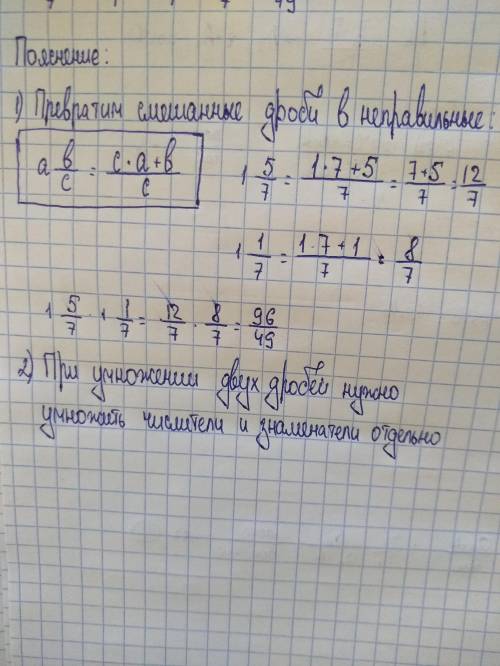 Пояснение:
1) Превратим смешанные дроби в неправильные:
a b/c = c·a+b/c
1 5/7 = 1·7+5/7 = 7+5/7 = 12/7
1 1/7 = 1·7+1/7 = 8/7
1 5/7 · 1 1/7 = 12/7 · 8/7 = 96/49
2) При умножении двух дробей нужно
умножить числители и знаменатели отдельно